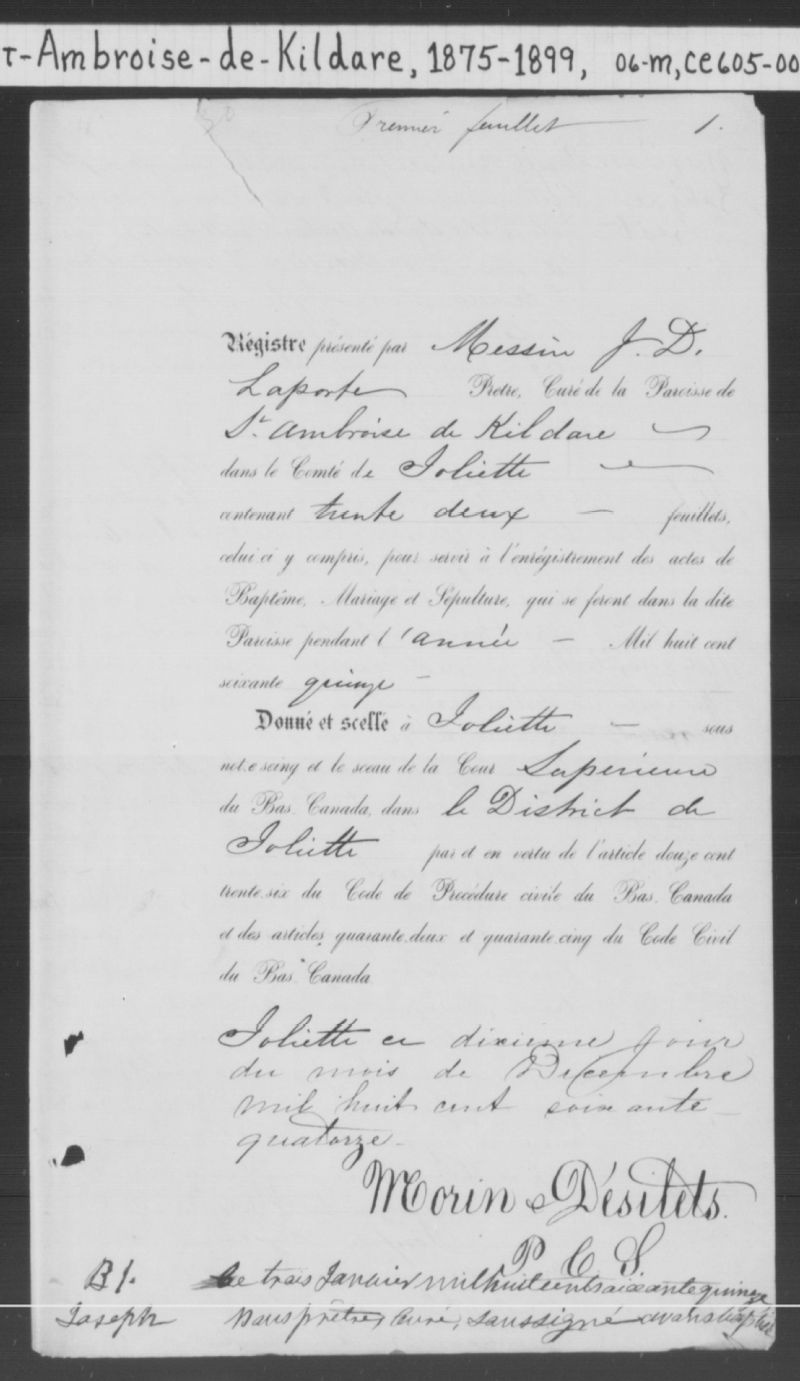 T-Ambroise-de-Kildare, 1875-1899, 06-M, CE605-00
Premier feuillet 1.
Régistre présenté par Messire J. D.
Laporte Pretre, Curé de la Paroisse de
St. Ambroise de Kildare
dans le Comté de Joliette
contenant trente deux — feuillets,
celui ci y compris, pour servir à l'enrégistrement des actes de
Baptême, Mariage et Sépulture, qui se feront dans la dite
Paroisse pendant l'année — Mil huit cent
soixante quinze —
Donné et scellé à Joliette — sous
notre seing et le sceau de la Cour Supérieure
du Bas Canada, dans le District de
Joliette par et en vertu de l'article douze cent
trente.six du Code de Procédure civile du Bas. Canada
et des articles quarante.deux et quarante.cinq du Code Civil
du Bas Canada
Joliette ce dixieme jour
du mois de Decembre
mil huit cent soixante
quatorze —
Morin & Désilets.
P. C. S.
B 1. Le trois Janvier mil huit cent soixante quinze
Joseph Nous prêtre, Curé, soussigné avons baptisé